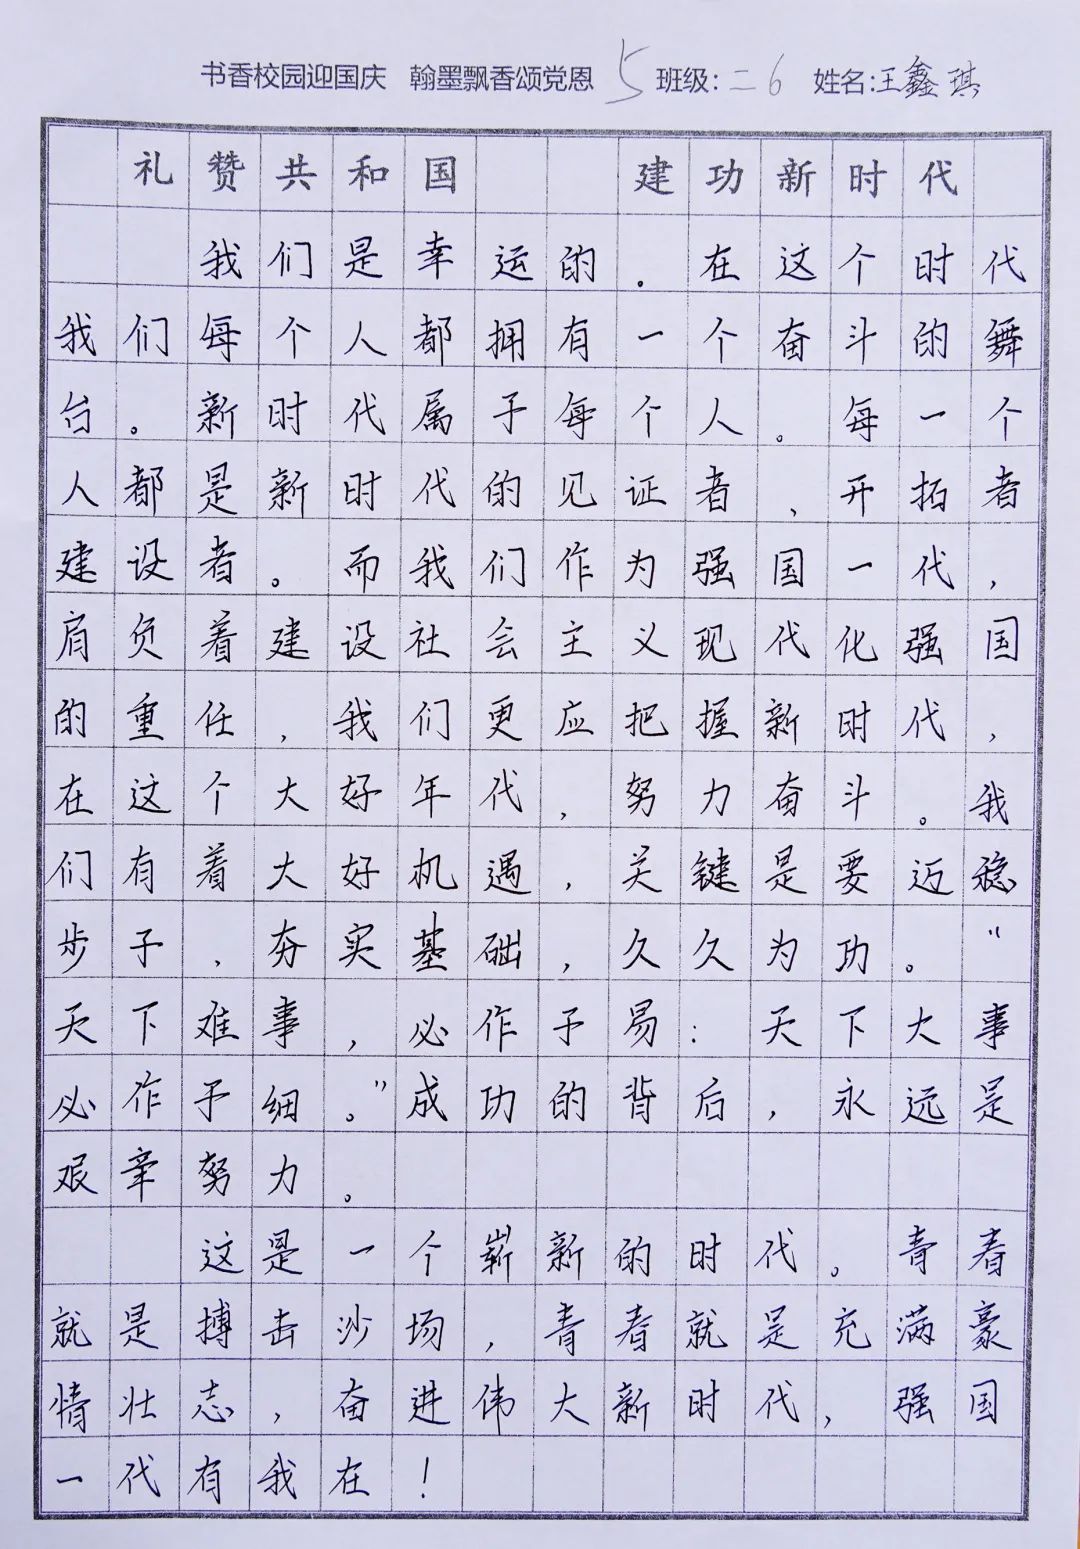 书香校园迎国庆 翰墨飘香颂党恩 5 班级:二6 姓名:王鑫琪
礼赞共和国 建功新时代
我们是幸运的。在这个时代
我们每个人都拥有一个奋斗的舞
台。新时代属于每个人。每一个
人都是新时代的见证者、开拓者
建设者。而我们作为强国一代,
肩负着建设社会主义现代化强国
的重任,我们更应把握新时代,
在这个大好年代,努力奋斗。我
们有着大好机遇,关键是要迈稳
步子,夯实基础,久久为功。“
天下难事,必作于易:天下大事
必作于细。”成功的背后,永远是
艰辛努力。
这是一个崭新的时代。青春
就是搏击沙场,青春就是充满豪
情壮志,奋进伟大新时代,强国
一代有我在!